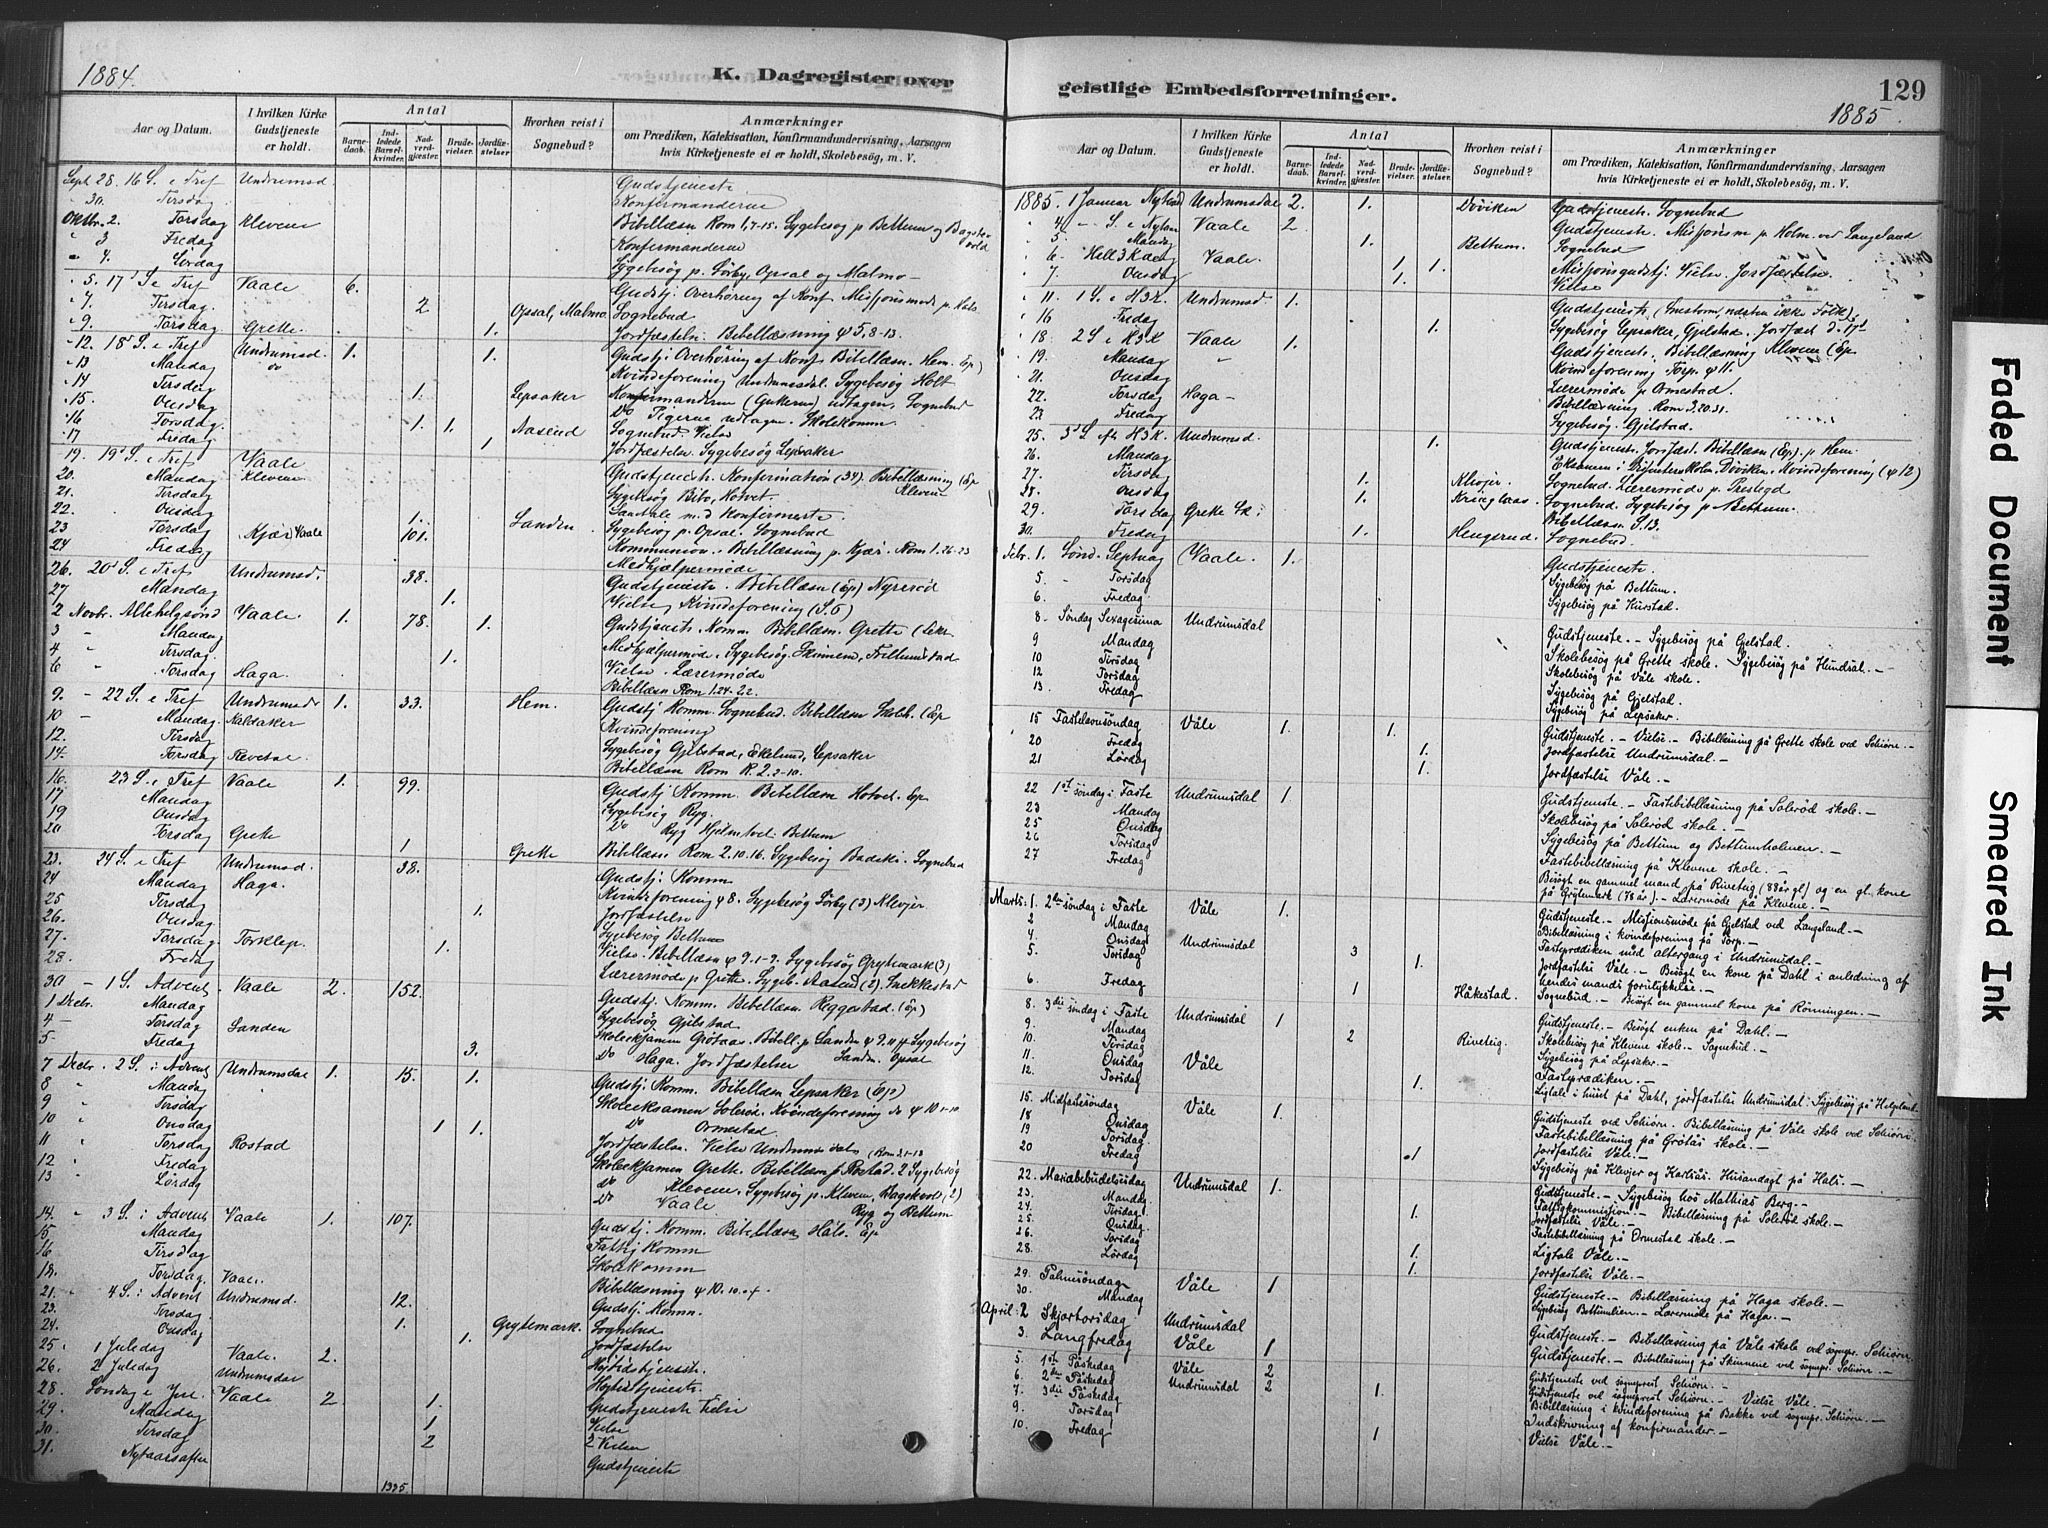 1884.
K. Dagregister over
Aar og Datum.
I hvilken Kirke Gudstjeneste er holdt.
Antal
Barnedaab.
Indledede Barselkvinder.
Nadverdgjæster.
Brudevielser.
Jordfæstelser
Hvorhen reist i Sognebud?
Anmærkninger
om Prædiken, Katekisation, Konfirmandundervisning, Aarsagen
hvis Kirketjeneste ei er holdt, Skolebesøg, m. V.
Sept 28. 16 S. e Tref Undrumsd. Gudstjeneste
30. Tirsdag Konfirmanderne
Oktbr. 2. Torsdag Klevene Bibellæsn Rom 1, 7-15. Sygebesøg p Bettum og
3 Fredag Konfirmanderne
4. Lørdag Sygebesøg p. Sørby, Opsal og Malmo
5. 17 S e Tref Vaale 6. Gudstj. Overhøring af Konf Misjonsmøde p.
7. Tirsdag 2 Opsal, Malmo Sognebud
9. Torsdag Grette 1. Jordfæsteln. Bibellæsning ψ 5, 8-13.
12. 18 S. e Tref Undrumsd. 1. 1. Gudstj. Overhøring af Konf Bibellæsn. Hem. (Ep)
13 Mandag do Kvindeforening Undrumsdal. Sygebesøg Holt
14 Tirsdag 1. Lepsaker Konfirmanderne (Gutterne) udtagen. Sognebud
15. Onsdag Do Pigerne udtagen. Skolekomm.
16 Torsdag 1. 1. Aasend Sognebud. Vielse
17 Fredag 1 Jordfæsteln Sygebesøg Lepsaker
19. 19 S. e Tref Vaale Gudstjenest. Konfirmation (34). Bibellæsning (Ep
20. Mandag Klevene Klevene
21. Tirsdag Sygebesøg Bibo, Hotvet.
22. Onsdag 1. Samtale m. d Konfirmerte.
23 Torsdag Kjær, Vaale 101. Sanden Sygebesøg p. Opsal. Sognebud
24 Fredag Kommunion. Bibellæsning p. Kjær. Rom 1. 16-23
Medhjælpermøde
26. 20 S. e Tref Undrumsd. 38. Gudstjeneste. Bibellæsn (Ep) Nyrerød
27 Mandag 1. Vielse Kvindeforening (S. 6)
2 Novbr. Allehelgensønd Vaale 1. 78. 1. Gudstjenest. Komm. Bibellæsn. Grette
3 Mandag Medhjælpermøde. Sygebesøg Skinnem,
4 Tirsdag 1. Vielse Lærermøde
6 Torsdag Haga. Bibellæsn Rom 1. 24-22.
9. 22 S. e Tref Undrumsd. 1. 33. Hem. Gudstj Komm. Sognebud. Bibellæsn (Ep
10 Mandag. Kvindeforening
12. Tirsdag Sygebesøg Gjelstad, Ekelund, Lepsaker
14. Torsdag Revetal Bibellæsn Rom R. 2. 2-10.
16. 23 S. e Tref Vaale 1. 99. Gudstj Komm. Bibellæsn Hotvet. Ep
17 Mandag Sygebesøg Ryg.
19 Onsdag Do Ryg Hjelmtvet. Bettum
20 Torsdag Grette 1 Grette Bibellæsn Rom 2. 10. 16. Sygebesøg Sognebud
23. 24 S. e Tref Undrumsd. 38. Gudstj. Komm
24 Mandag Haga. Kvindeforening ψ 8. Sygebesøg Sørby (3) Klevjer
25 Tirsdag 1. Jordfæstelse
26. Onsdag Sygebesøg Bettum
27. Torsdag 1. Vielse. Bibellæsn ψ 9. 1-9. Sygebesøg Grytemark (3)
28. Fredag Lærermøde p Grette. Sygeb. Aasend (2). Snekkestad
30 1 S. Advent Vaale 2. 152. Gudstj. Komm. Bibellæsn. Reggestad. (Ep)
1 Decbr. Mandag Sygebesøg Gjelstad
4 Torsdag Sanden Skoleeksamen Grøtaas. Bibell. p. Sanden ψ 9. Sygebesøg
5 Fredag 3. Do Haga. Jordfæstelser Sanden. Opsal
7 Decbr. 2 S. i Advent Undrumsdal 1. 15. 1. Gudstj Komm. Bibellæsn Lepsaker (Ep)
8 Mandag Skoleeksamen Solerød. Kvindeforening do ψ 10. 1-10
9 Tirsdag Do Ormestad
10 Onsdag 1 1. Jordfæsteln. Vielse Undrumsdal
11 Torsdag Rostad Skoleeksamen Grette. Bibellæsn p. Rostad. 2 Sygebesøg
12 Fredag Do Klevene. Sygebesøg p. Klevene, (2)
13 Lørdag Do Vaale Ryg og Bettum
14. 3 S. i Advent Vaale 1. 107. Gudstj. Komm. Bibellæsn Ep
15 Mandag Fattigkomm
16 Tirsdag Skolekomm
18. Torsdag. Vaale. Bibellæsning ψ 10.
21. 4 S. i Advent Undrumsd. 12. Gudstj. Komm.
23. Tirsdag 1. Grytemark. Sognebud
24. Onsdag 1. Jordfæstelse
25 1 Juledag Vaale. 2. Højtidstjeneste.
26. 2 Juledag Undrumsdal Højtidstjeneste.
28. Søndag e Jul. Vaale 2 1. Gudstjeneste Vielse
29. Mandag 1 Vielse
30. Tirsdag 2 2 Vielser
31. Nytaarsaften Gudstjeneste
1395.
geistlige Embedsforretninger.
129
1885
Aar og Datum.
I hvilken Kirke Gudstjeneste er holdt.
Antal
Barnedaab.
Indledede Barselkvinder.
Nadverdgjæster.
Brudevielser.
Jordfæstelser.
Hvorhen reist i Sognebud?
Anmærkninger
om Prædiken, Katekisation, Konfirmandundervisning, Aarsagen
hvis Kirketjeneste ei er holdt, Skolebesøg, m. V.
1885. 1 Januar Undrumsdal 2. 1. Døviken Gudstjenest. Sognebud
4 S. e Nytaar Vaale 2 Gudstjeneste. Misjonsm p. Holm ved Langeland
5. Mandag 1. Bettum. Sognebud
6 Hell 3 K dag Vaale. 1 1. Misjonsgudstj. Vielse. Jordfæstelse.
7. Onsdag 1. Vielse
11. 1 S. e H3K. Undrumsd. 1. Gudstjeneste. (Snestorm, næsten ikke Folk)
16 Fredag 1. Sygebesøg Lepsaker, Gjelstad. Jordfæst d. 17
18. 2 S e H3K Vaale 1. Gudstjenest. Bibellæsning Klevene (Ep
19. Mandag Kvindeforening Torp. ψ 11.
21. Onsdag Lærermøde p Ormestad.
22. Torsdag Haga Bibellæsning Rom 3. 20. 31.
23 Fredag Sygebesøg. Gjelstad.
25. 3 S. eft. H3K. Undrumsd. 1. Gudstjenest. Jordfæst. Bibellæsn (Ep). p Hem
26. Mandag Eksamen i Døviken. Kvindeforening (ψ 12)
27. Tirsdag 1. Klevjer. Sognebud. Lærermøde p. Prestegd
28. Onsdag 1. Sognebud. Sygebesøg p Bettum.
29. Torsdag Grette Sk. Bibellæsn S. 13.
30. Fredag 1. Hengsrud Sognebud.
Febr. 1. Sønd. Septuag Vaale. 1. Gudstjeneste.
5. Torsdag Sygebesøg på Bettum.
6. Fredag Sygebesøg på Kurstad.
8. Søndag Sexagesima Undrumsdal Gudstjeneste. – Sygebesøg på Gjelstad.
9 Mandag Skolebesøg på Grette skole. Sygebesøg på Hundsal. –
10 Tirsdag Skolebesøg på Våle skole.
12 Torsdag Sygebesøg på Gjelstad
13. Fredag Sygebesøg på Lepsaker.
15 Fastelavnsöndag Våle 1. 1. Gudstjeneste. – Vielse. – Bibellæsning på Grette skole ved Schiörn. –
20 Fredag 1. Jordfæstelse Undrumsdal. –
21 Lördag 1. Jordfæstelse Våle. –
22 1ste söndag i Faste Undrumsdal 1. Gudstjeneste. – Fastebibellæsning på Solerød skole. –
23 Mandag Skolebesøg på Solerød skole. –
25 Onsdag Sygebesøg på Bettum og Bettumholmen. –
26 Torsdag Fastebibellæsning på Klevene skole. –
27 Fredag Besøgt en gammel mand på Riveteig (88 år gl) og en gl. kone
på Grytemark (78 år). – Lærermøde på Klevene. –
Marts: 1. 2den söndag i Faste Våle 1. Gudstjeneste. – Missionsmøde på Gjelstad ved Langeland. –
2 Mandag Bibellæsning i kvindeforening på Torp. –
4. Onsdag Undrumsdal 3 Fasteprædiken med altergang i Undrumsdal. –
5. Torsdag 1. Jordfæstelse Våle. – Besøgt en kone på Dahl i anledning af
hendes mands forulykkelse. –
6 Fredag 1 Håkestad. Sognebud. – Besøgt en gammel kone på Rönningen. –
8. 3die söndag i Faste Undrumsdal 1 Gudstjeneste. – Besøgt enken på Dahl. –
9. Mandag 2 Riveteig. Skolebesøg på Klevene skole. – Sognebud. –
10. Tirsdag Sygebesøg på Lepsaker. –
11. Onsdag Våle Fasteprædiken. –
12. Torsdag 1. Ligtale i huset på Dahl, jordfæstelse Undrumsdal. Sygebesøg på Helgeland. –
15. Midfastesöndag Våle 1. Gudstjeneste ved Schiörn. Bibellæsning på Våle skole ved Schiörn. –
18 Onsdag
19 Torsdag Fastebibellæsning på Grötås skole. –
20 Fredag 1 Jordfæstelse Våle. –
Sygebesøg på Klevjer og Kartsås. Husandagt på Hals. –
22. Mariæbebudelsesdag Undrumsdal 1. Gudstjeneste. – Sygebesøg hos Mathias Berg. –
23. Mandag Fattigkommission. – Bibellæsning på Solerød skole. –
24. Tirsdag 1. Jordfæstelse Våle. –
25. Onsdag
26. Torsdag 1. Fastebibellæsning på Ormestad skole. – Ligtale Våle. –
28. Lördag 1. Jordfæstelse Våle. –
29. Palmesöndag Våle 1 Gudstjeneste. – Bibellæsning på Haga skole. –
30. Mandag Sygebesøg Bettumlien. – Lærermøde på Haga. –
April: 2 Skjærtorsdag Undrumsdal Gudstjeneste. – Bibellæsning på Våle skole ved sognepr. Schiörn. –
3. Langfredag Våle 1 Gudstjeneste. – Bibellæsning på Skinnene ved sognepr. Schiörn. –
5. 1ste Påskedag Våle 2 Gudstjeneste ved sogneprest Schiörn. –
6. 2den Påskedag Undrumsdal 2 1. Gudstjeneste ved sogneprest Schiörn. – Vielse Våle. –
7. 3die Påskedag Bibellæsning i kvindeforening på Bakke ved sognepr. Schiörn. –
9. Torsdag Indskrivning af konfirmander. –
10. Fredag 1 Vielse Våle. –
Faded Document
Smeared Ink